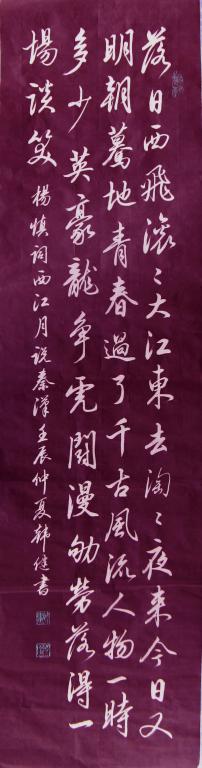 落日西飛滾〻大江東去滔〻夜來今日又
明朝驀地青春過了千古風流人物一時
多少英豪龍爭虎鬪漫劬勞落得一
場談笑
楊慎詞西江月說秦漢壬辰仲夏韩健書